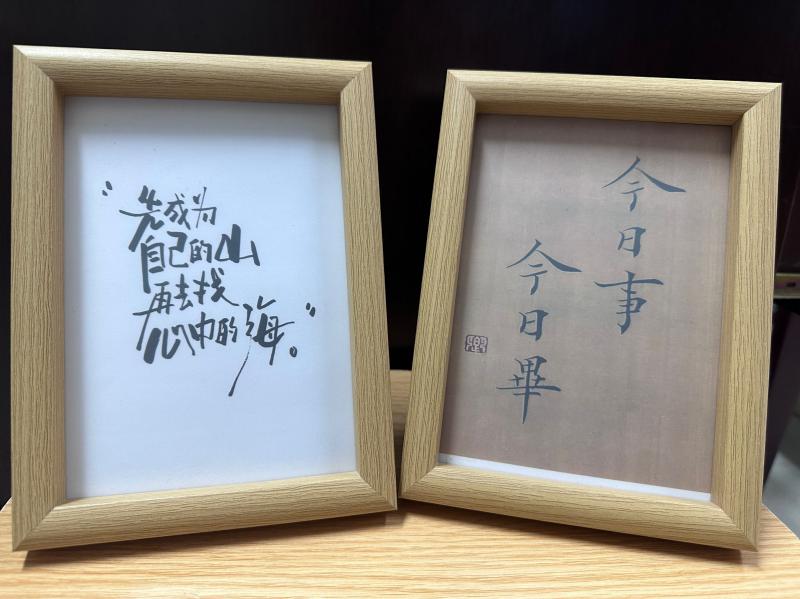 “先成为
自己的山
再去找
心中的海。”
今日事
今日畢